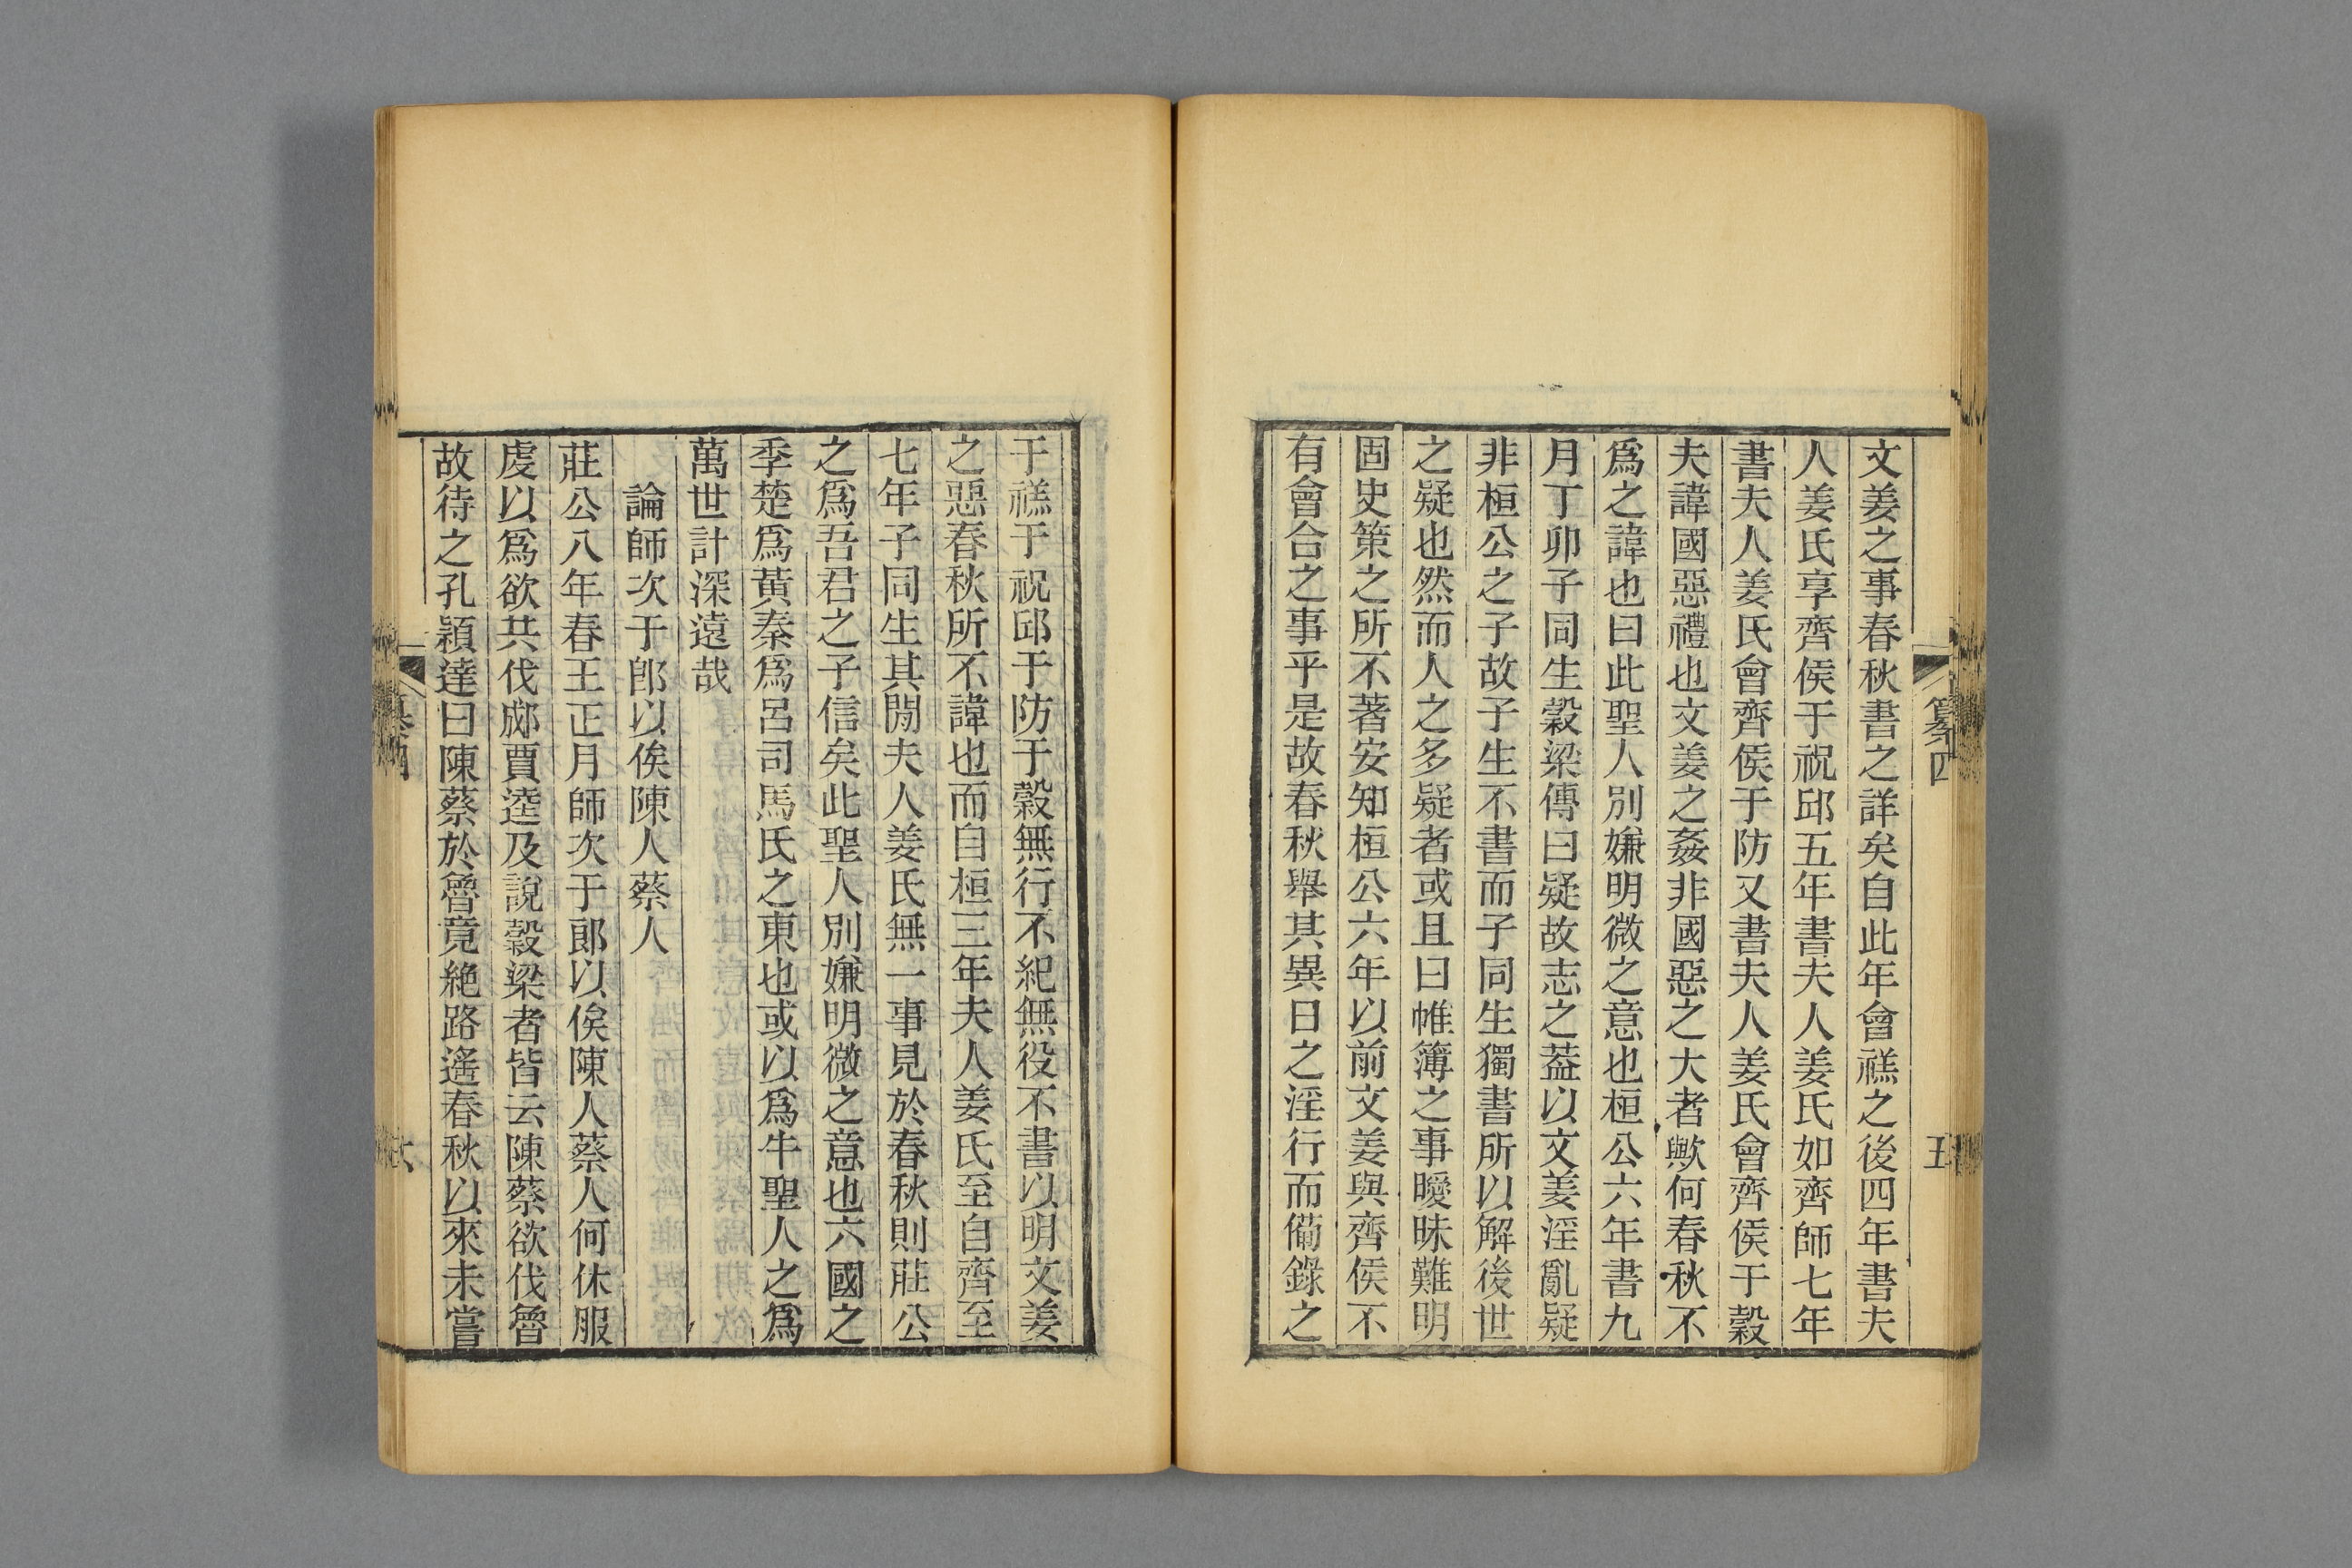 纂四
五
文姜之事春秋書之詳矣自此年會禚之後四年書夫
人姜氏享齊侯于祝邱五年書夫人姜氏如齊師七年
書夫人姜氏會齊侯于防又書夫人姜氏會齊侯于穀
夫諱國惡禮也文姜之姦非國惡之大者歟何春秋不
爲之諱也曰此聖人別嫌明微之意也桓公六年書九
月丁卯子同生穀梁傳曰疑故志之葢以文姜淫亂疑
非桓公之子故子生不書而子同生獨書所以解後世
之疑也然而人之多疑者或且曰帷簿之事曖昧難明
固史策之所不著安知桓公六年以前文姜與齊侯不
有會合之事乎是故春秋舉其異日之淫行而備錄之
于禚于祝邱于防于穀無行不紀無役不書以明文姜
之惡春秋所不諱也而自桓三年夫人姜氏至自齊至
七年子同生其閒夫人姜氏無一事見於春秋則莊公
之爲吾君之子信矣此聖人別嫌明微之意也六國之
季楚爲黃秦爲呂司馬氏之東也或以爲牛聖人之爲
萬世計深遠哉
論師次于郎以俟陳人蔡人
莊公八年春王正月師次于郎以俟陳人蔡人何休服
虔以爲欲共伐郕賈逵及說穀梁者皆云陳蔡欲伐魯
故待之孔穎達曰陳蔡於魯竟絶路遙春秋以來未嘗
六